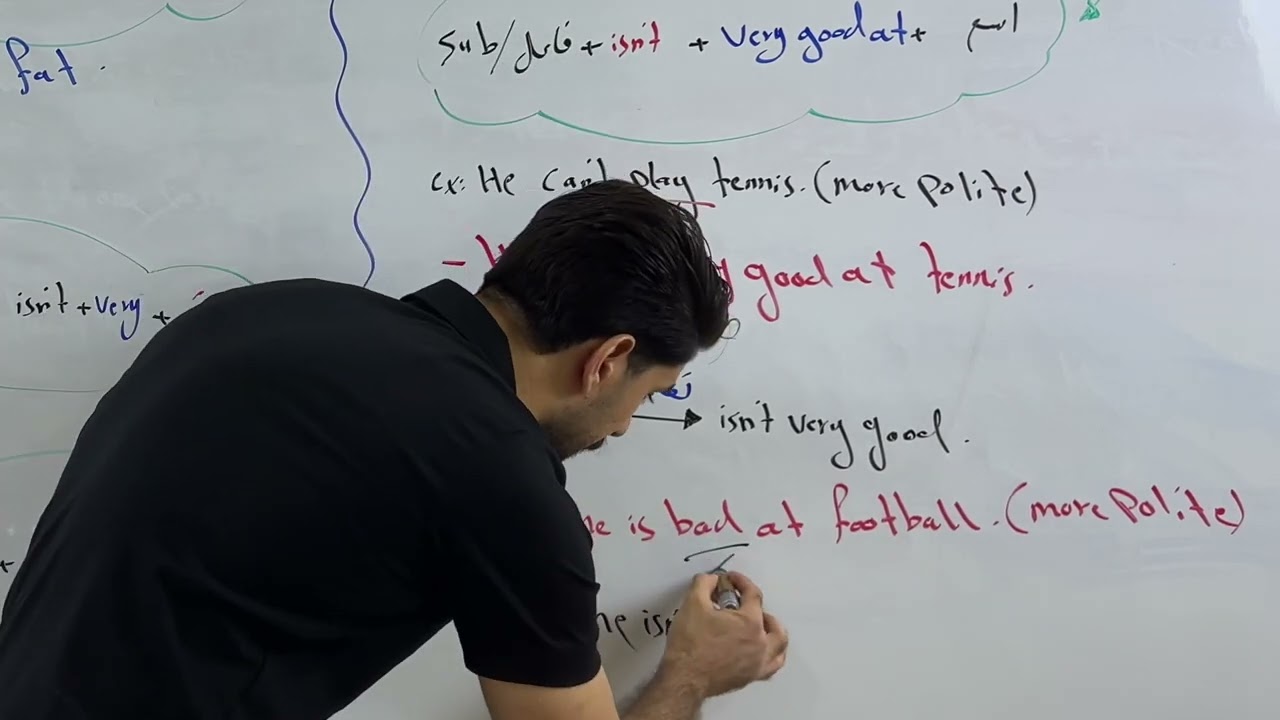 fat.
isn't + very +
sub/فاعل + isn't + very good at + اسم
ex: He can't play tennis. (more polite)
- good at tennis.
isn't very good.
is bad at football. (more polite)